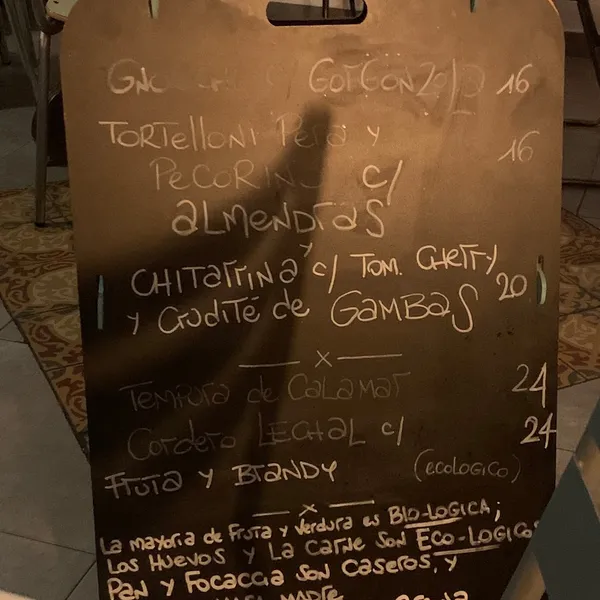 c/ GORGONZOLA 16
TORTELLONI Pera y 16
PECORINO c/
ALMENDRAS
CHITARRINA c/ TOM. CHERRY
y CRUDITÉ de GAMBAS 20
x
TEMPURA de CALAMAR 24
CORDERO LECHAL c/ 24
FRUTA Y BRANDY (ECOLOGICO)
x
La mayoria de Fruta y verdura es BIO-LOGICA;
LOS HUEVOS Y LA CARNE SON ECO-LOGICOS
PAN Y FOCACCIA SON CASEROS, Y
MADRE